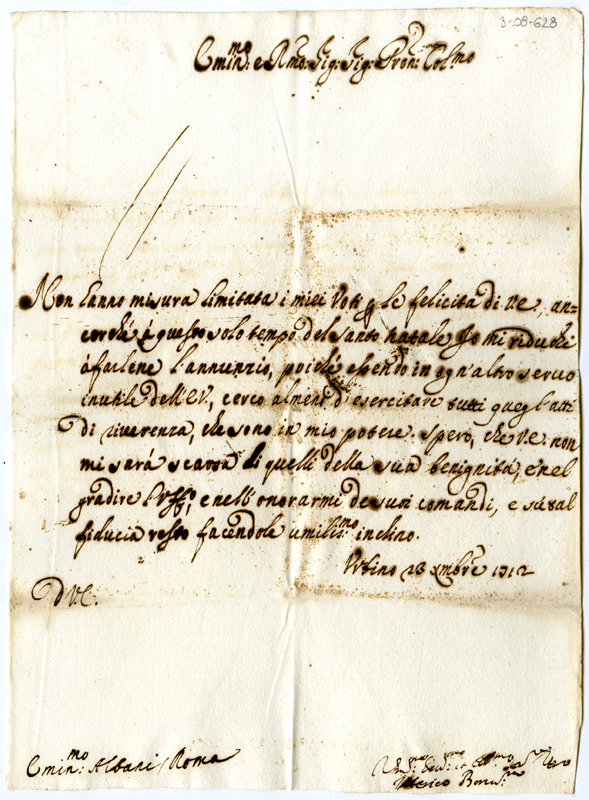 3-08-623
Emin.mo e Rmo: Sig: Sig: Pron: Col.mo
Non hanno misura limitata i miei Voti p le felicita di V.E., an=
corché à questo solo tempo del santo natale Io mi riduchi
à farlene l'annunzio, poiché essendo in ogn'altro servo
inutile dell'E.V., cerco almeno d'esercitare tutti quegl'atti
di riverenza, che sono in mio potere. Spero, che V.E. non
mi sarà scarsa di quelli della sua benignità, e nel
gradire l', e nell'onorarmi de suoi comandi, e sù tal
fiducia resto facendole umilis.mo inclino.
Urbino 23 Xmbre 1712
D V.E.
Emin.mo Albani / Roma